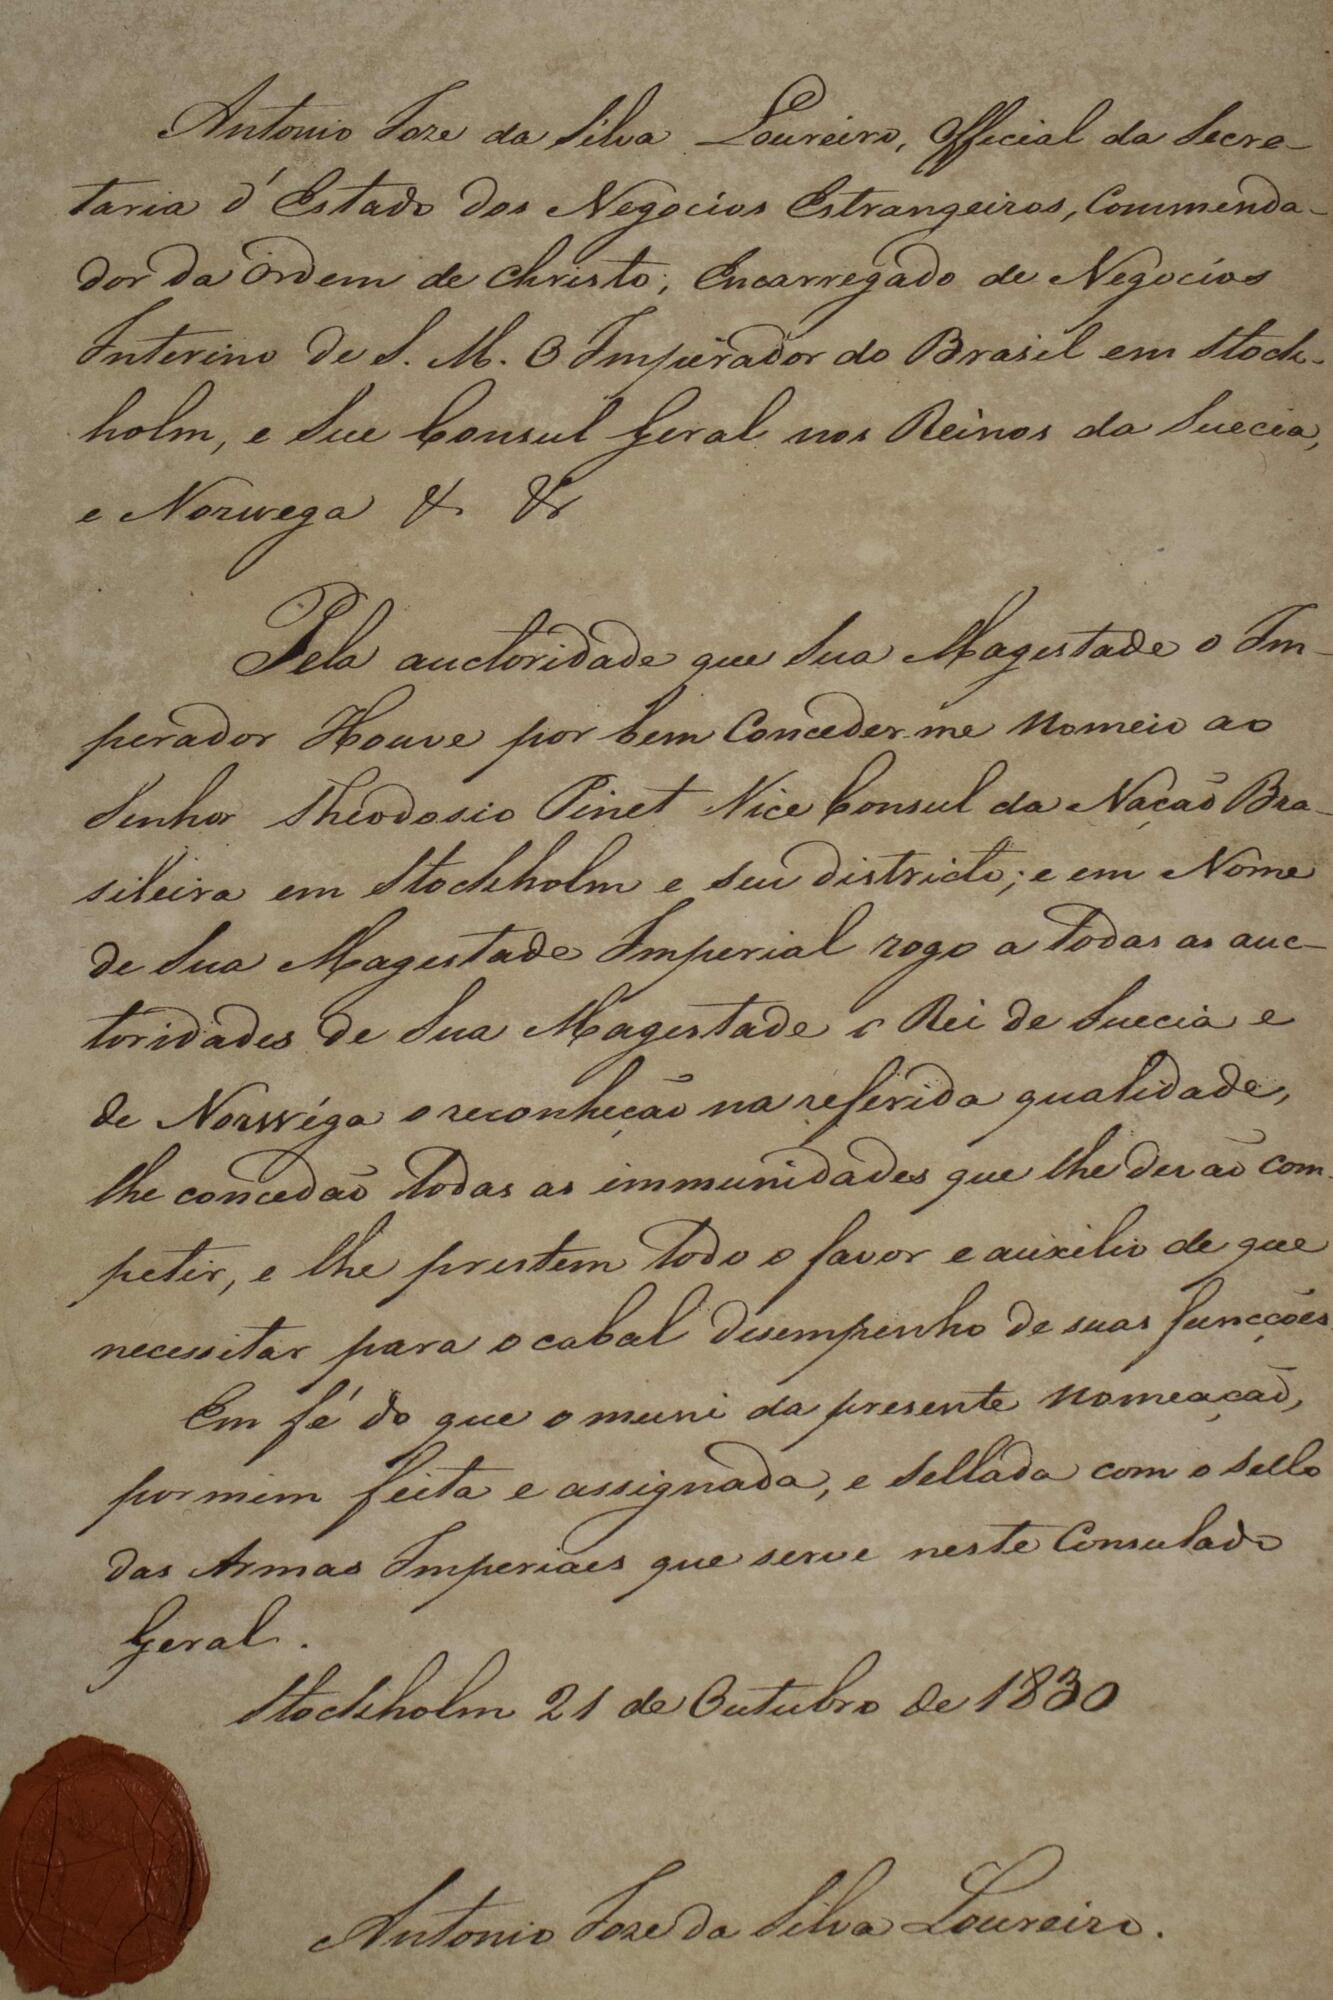 Antonio Joze da Silva Loureiro, Official da Secre-
taria d'Estado dos Negocios Estrangeiros, Commenda-
dor da Ordem de Christo, Encarregado de Negocios
Interino de S. M. O Imperador do Brasil em Stock-
holm, e Seu Consul Geral nos Reinos da Suecia,
e Norwega & &
Pela auctoridade que Sua Magestade o Im-
perador Houve por bem Conceder-me Nomeio ao
Senhor Theodosio Pinet Vice Consul da Nação Bra-
sileira em Stockholm e seu districto; e em Nome
de Sua Magestade Imperial rogo a todas as auc-
toridades de Sua Magestade o Rei de Suecia e
de Norwéga o reconheção na referida qualidade,
lhe concedão todas as immunidades que lhe derão com-
petir, e lhe prestem todo o favor e auxilio de que
necessitar para o cabal desempenho de suas funcções
Em fé do que o muni da presente Nomeação,
por mim feita e assignada, e Sellada com o Sello
das Armas Imperiaes que serve neste Consulado
Geral.
Stockholm 21 de Outubro de 1830
Antonio Joze da Silva Loureiro.